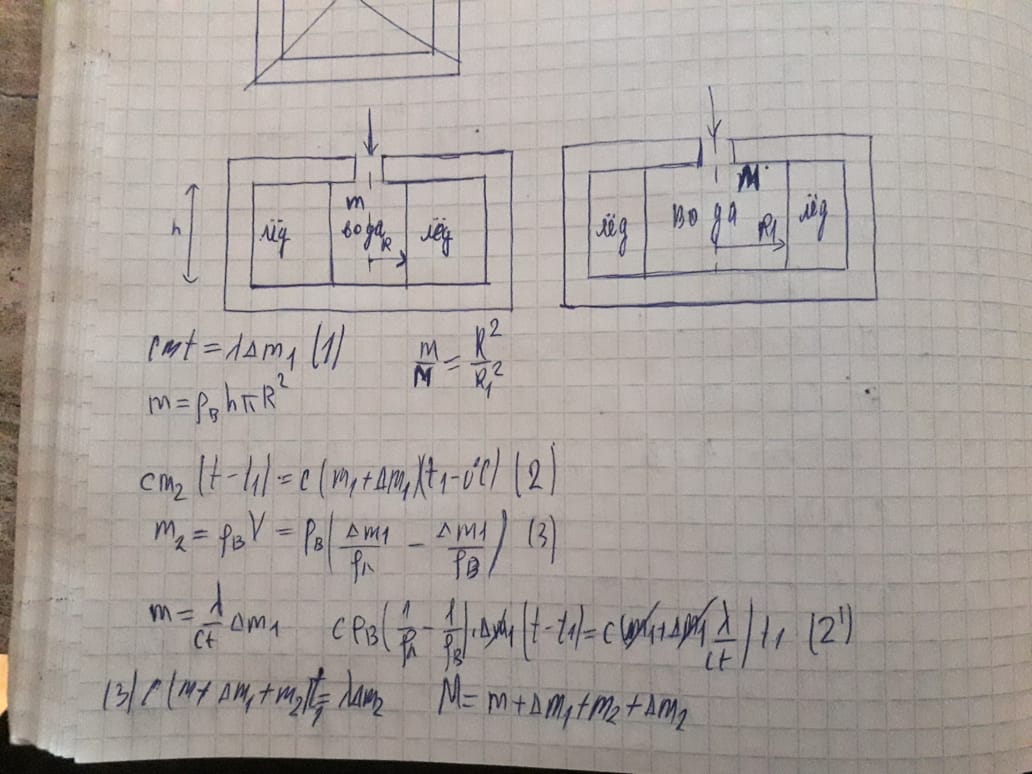 h лёд m вода R лёд
лёд вода M R₁ лёд
cmt = λΔm₁ (1)
m/M = R²/R₁²
m = ρ_в hπR²
cm₂(t-t₁) = c(m₁+Δm₁)(t₁-0°C) (2)
m₂ = ρ_вV = ρ_в(Δm₁/ρ_л - Δm₁/ρ_в) (3)
m = λ/ct Δm₁
cρ_в(1/ρ_л - 1/ρ_в)·Δm₁(t-t₁) = c(m₁+Δm₁ λ/ct)t₁ (2')
(3) c(m+Δm₁+m₂)t₁ = λΔm₂
M = m+Δm₁+m₂+Δm₂